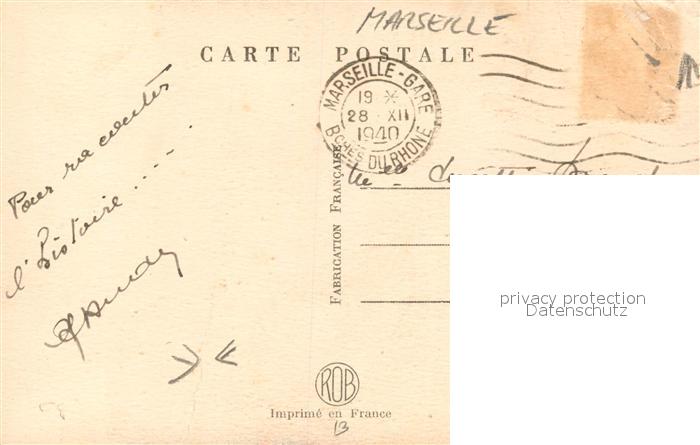 MARSEILLE
CARTE POSTALE
MARSEILLE-GARE
19 *
28 XII
1940
BCHES DU RHONE
Pour raconter
l'histoire....
FABRICATION FRANÇAISE
privacy protection
Datenschutz
ROB
Imprimé en France
13